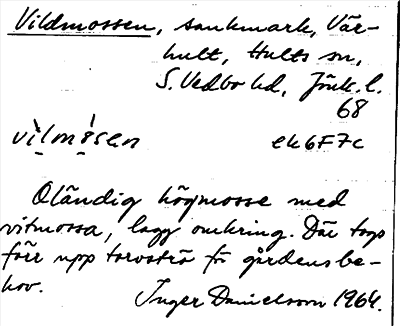 Vildmossen, sankmark, Vär-
hult, Hults sn,
S. Vedbo hd, Jönk. l.
68
vìlmɵ̀sən ek 6F7c
Oländig högmosse med
vitmossa, lagg omkring. Där togs
förr upp torvströ för gårdens be-
hov.
Inger Danielsson 1964.